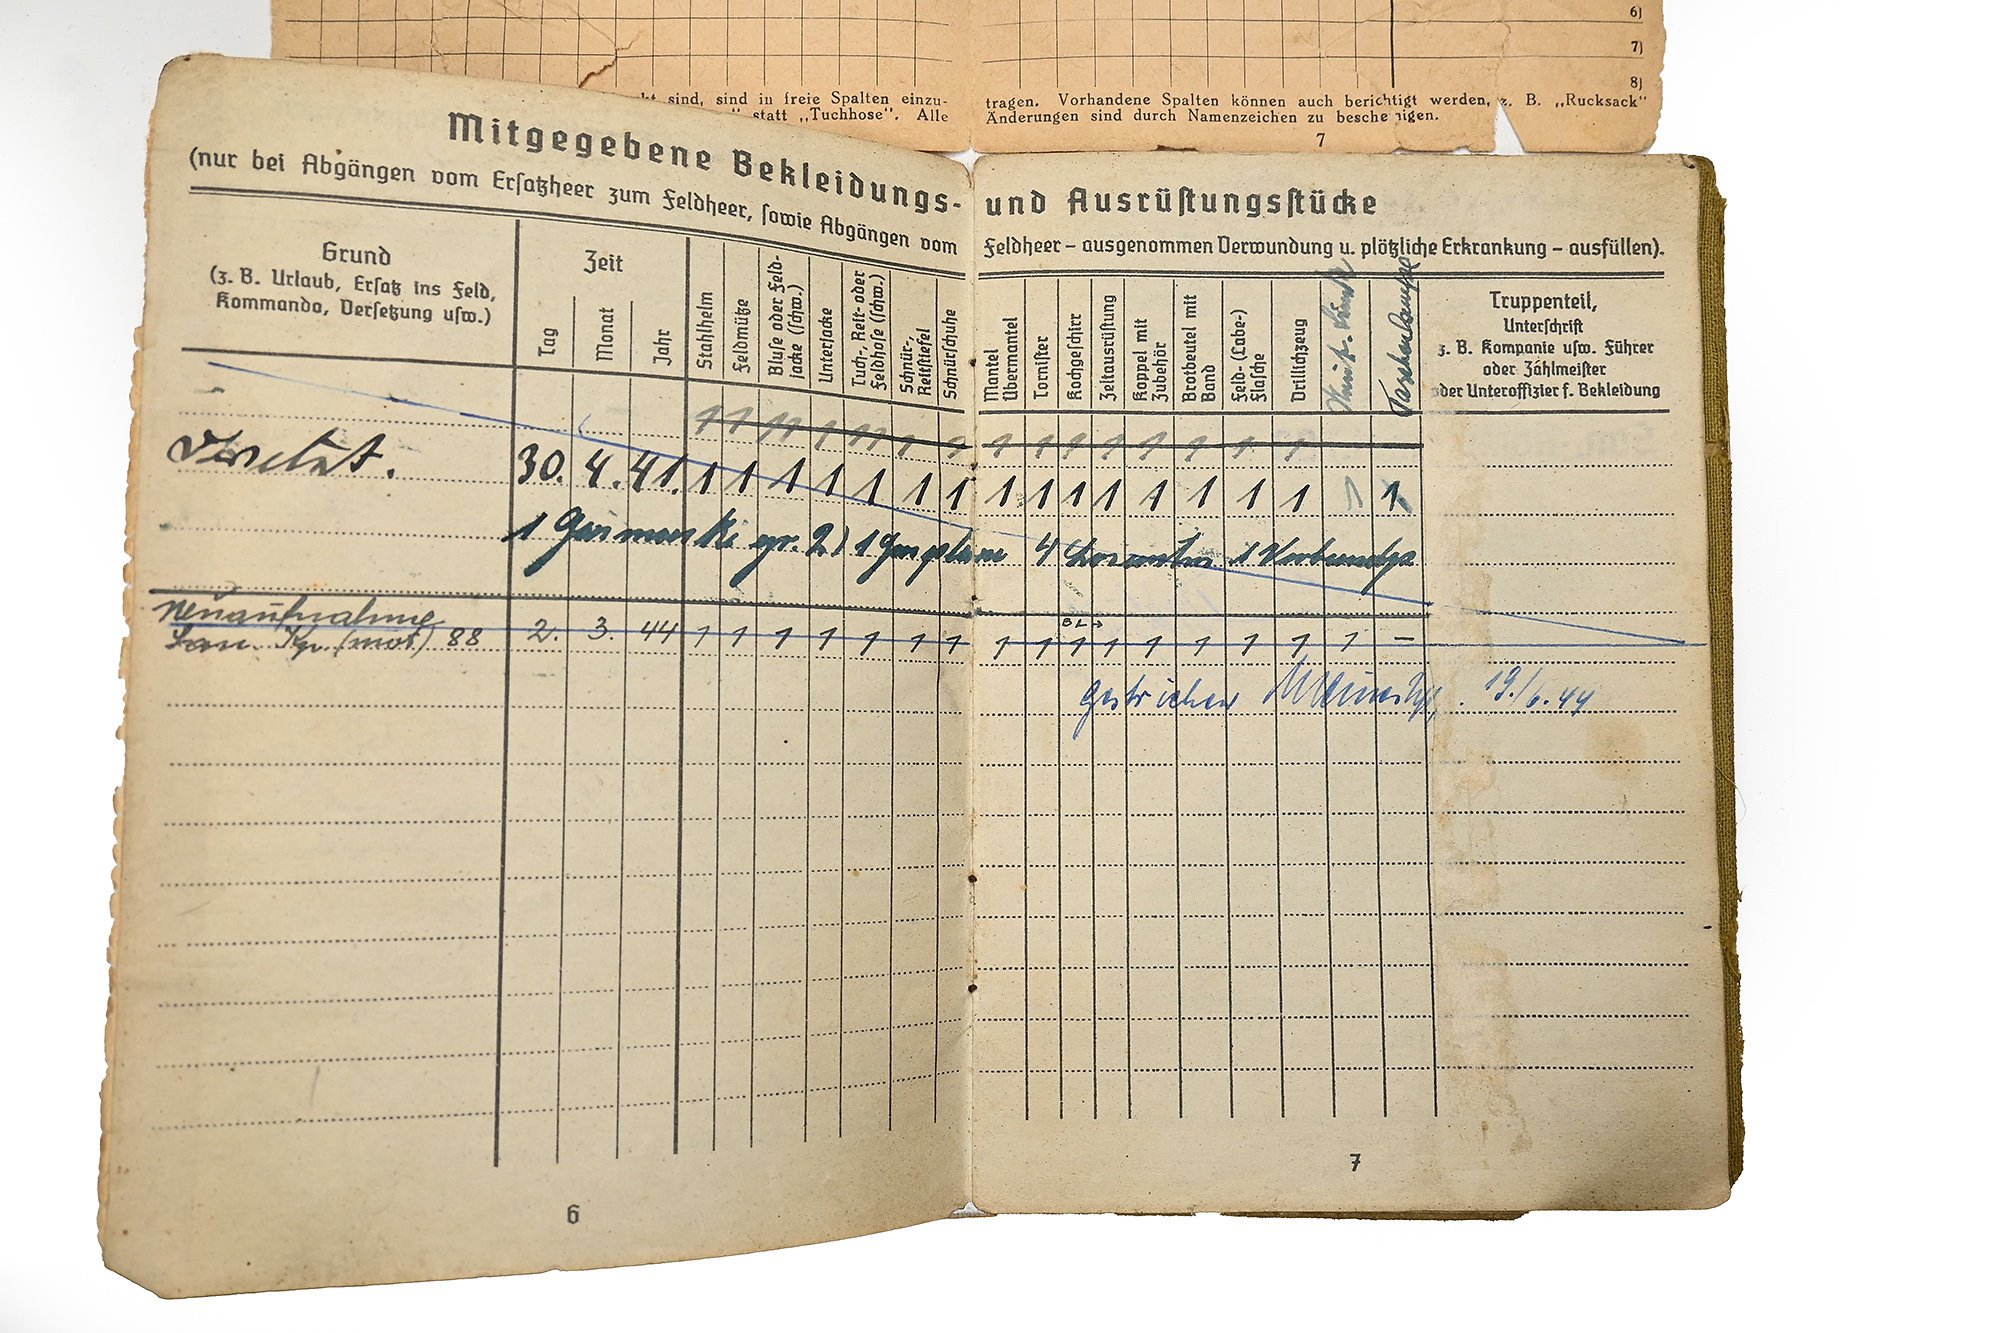 6)
7)
8)
kt sind, sind in freie Spalten einzu-
" statt „Tuchhose". Alle
tragen. Vorhandene Spalten können auch berichtigt werden, z. B. „Rucksack"
Änderungen sind durch Namenzeichen zu besche nigen.
7
Mitgegebene Bekleidungs- und Ausrüstungsstücke
(nur bei Abgängen vom Ersatzheer zum Feldheer, sowie Abgängen vom Feldheer – ausgenommen Verwundung u. plötzliche Erkrankung – ausfüllen).
Grund
(z. B. Urlaub, Ersatz ins Feld,
Kommando, Versetzung usw.)
Zeit
Tag
Monat
Jahr
Stahlhelm
Feldmütze
Bluse oder Feld-
jacke (schw.)
Unterjacke
Tuch-, Reit- oder
Feldhose (schw.)
Schnür-,
Reitstiefel
Schnürschuhe
Mantel
Übermantel
Tornister
Kochgeschirr
Zeltausrüstung
Koppel mit
Zubehör
Brotbeutel mit
Band
Feld- (Labe-)
Flasche
Drillichzeug
Taschenlampe
Truppenteil,
Unterschrift
z. B. Kompanie usw. Führer
oder Zahlmeister
oder Unteroffizier f. Bekleidung
1 1 11 1 11 1 1 1 1 1 1 1 1 1 1
30. 4. 41. 1 1 1 1 1 1 1 1 1 1 1 1 1 1 1 1 1
1 Gasmaske gr. 2) 1 Gasplane 4 1
Neuaufnahme
San. Kp. (mot) 88 2. 3. 44 1 1 1 1 1 1 1 1 1 1 1 1 1 1 1 1 –
gestrichen 19./6.44
6
7